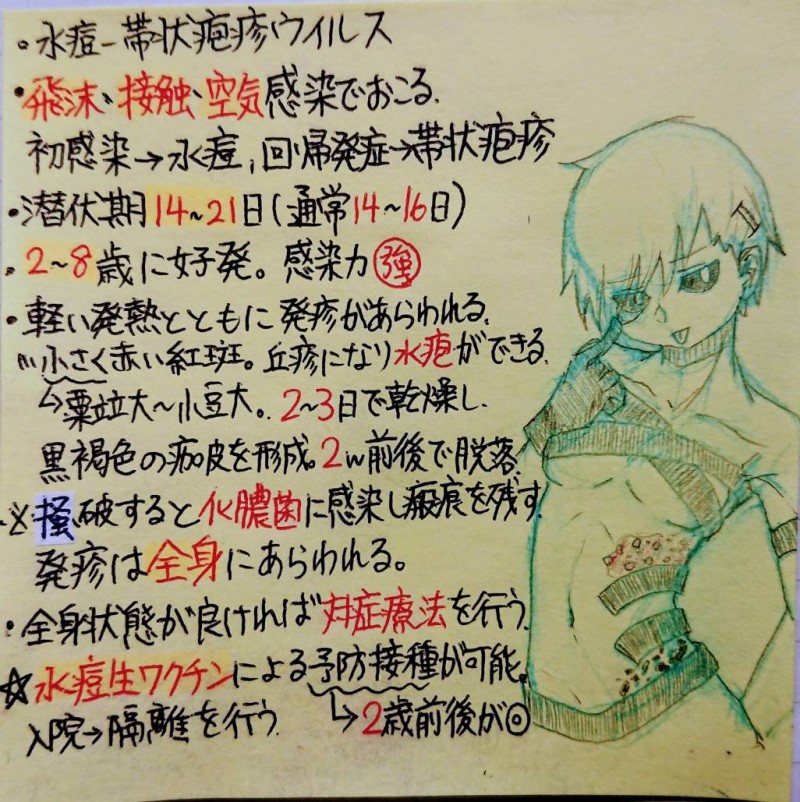 ・水痘-帯状疱疹ウイルス
・飛沫、接触、空気感染でおこる。
初感染→水痘、回帰発症→帯状疱疹
・潜伏期14~21日(通常14~16日)
・2~8歳に好発。感染力強
・軽い発熱とともに発疹があらわれる。
小さく赤い紅斑。丘疹になり水疱ができる。
↳粟粒大~小豆大。2~3日で乾燥し、
黒褐色の痂皮を形成。2w前後で脱落。
※掻破すると化膿菌に感染し瘢痕を残す。
発疹は全身にあらわれる。
・全身状態が良ければ対症療法を行う。
☆水痘生ワクチンによる予防接種が可能。
入院→隔離を行う。 ↳2歳前後が◎